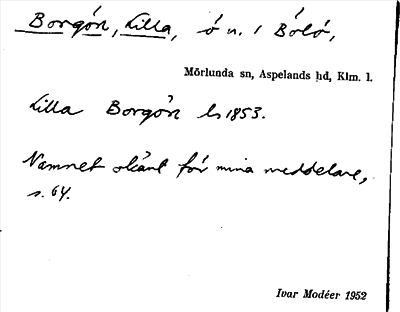 Borgön, Lilla, ö n. i Bölö,
Mörlunda sn, Aspelands hd, Klm. l.
Lilla Borgön Ls 1853.
Namnet okänt för mina meddelare,
s. 64.
Ivar Modéer 1952